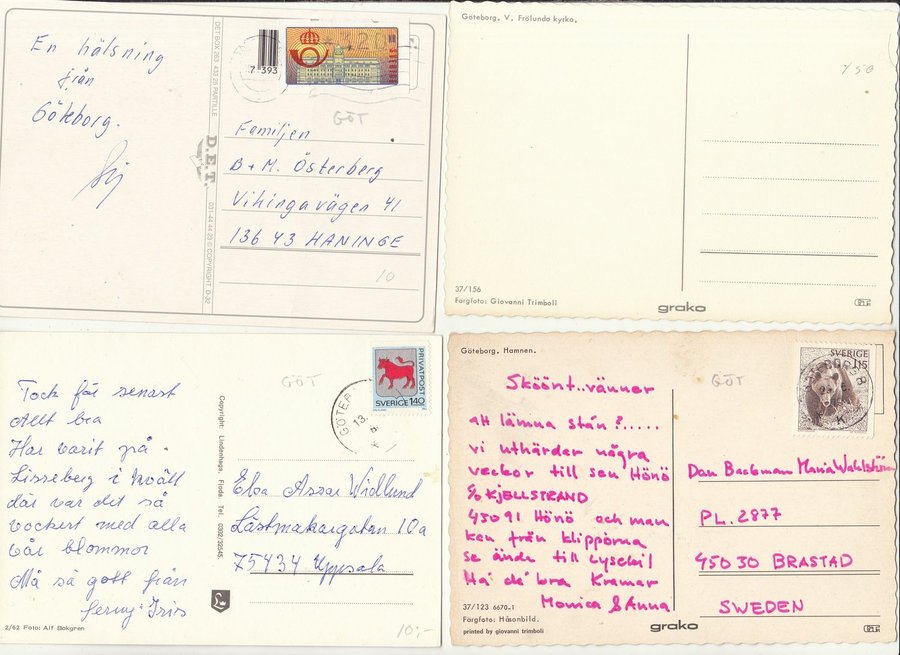 En hälsning
från
Göteborg.
DET-BOX 263 433 25 PARTILLE
D.E.T.
COPYRIGHT D-32
7393
GÖT
Familjen
B+M. Österberg
Vikingavägen 41
136 43 HANINGE
10
Göteborg. V. Frölunda kyrka.
37/156
Färgfoto: Giovanni Trimboli
grako
Tack för senast
Allt bra
Har varit på
Lisseberg i kväll
där var det så
vackert med alla
vår blommor
Må så gott från
Jerny+Iris
2/62 Foto: Alf Bokgren
Copyright: Lindenhags, Floda. Tel 0302/32545
GÖT
PRIVATPOST
SVERIGE 140
GÖTEB
13
Elsa Assar Widlund
Lästmakargatan 10a
75434 Uppsala
10:-
Göteborg. Hamnen.
Sköönt..vänner
att lämna stán?.....
vi uthärdar några
veckor till sen Hönö
c/o KJELLSTRAND
45091 Hönö och man
kan från klipporna
se ända till Lysekil
Ha de' bra Kramar
Monica & Anna
37/123 6670-1
Färgfoto: Håsonbild.
printed by giovanni trimboli
grako
GÖT
SVERIGE
115
Dan Backman Maria Wahlström
PL. 2877
45030 BRASTAD
SWEDEN